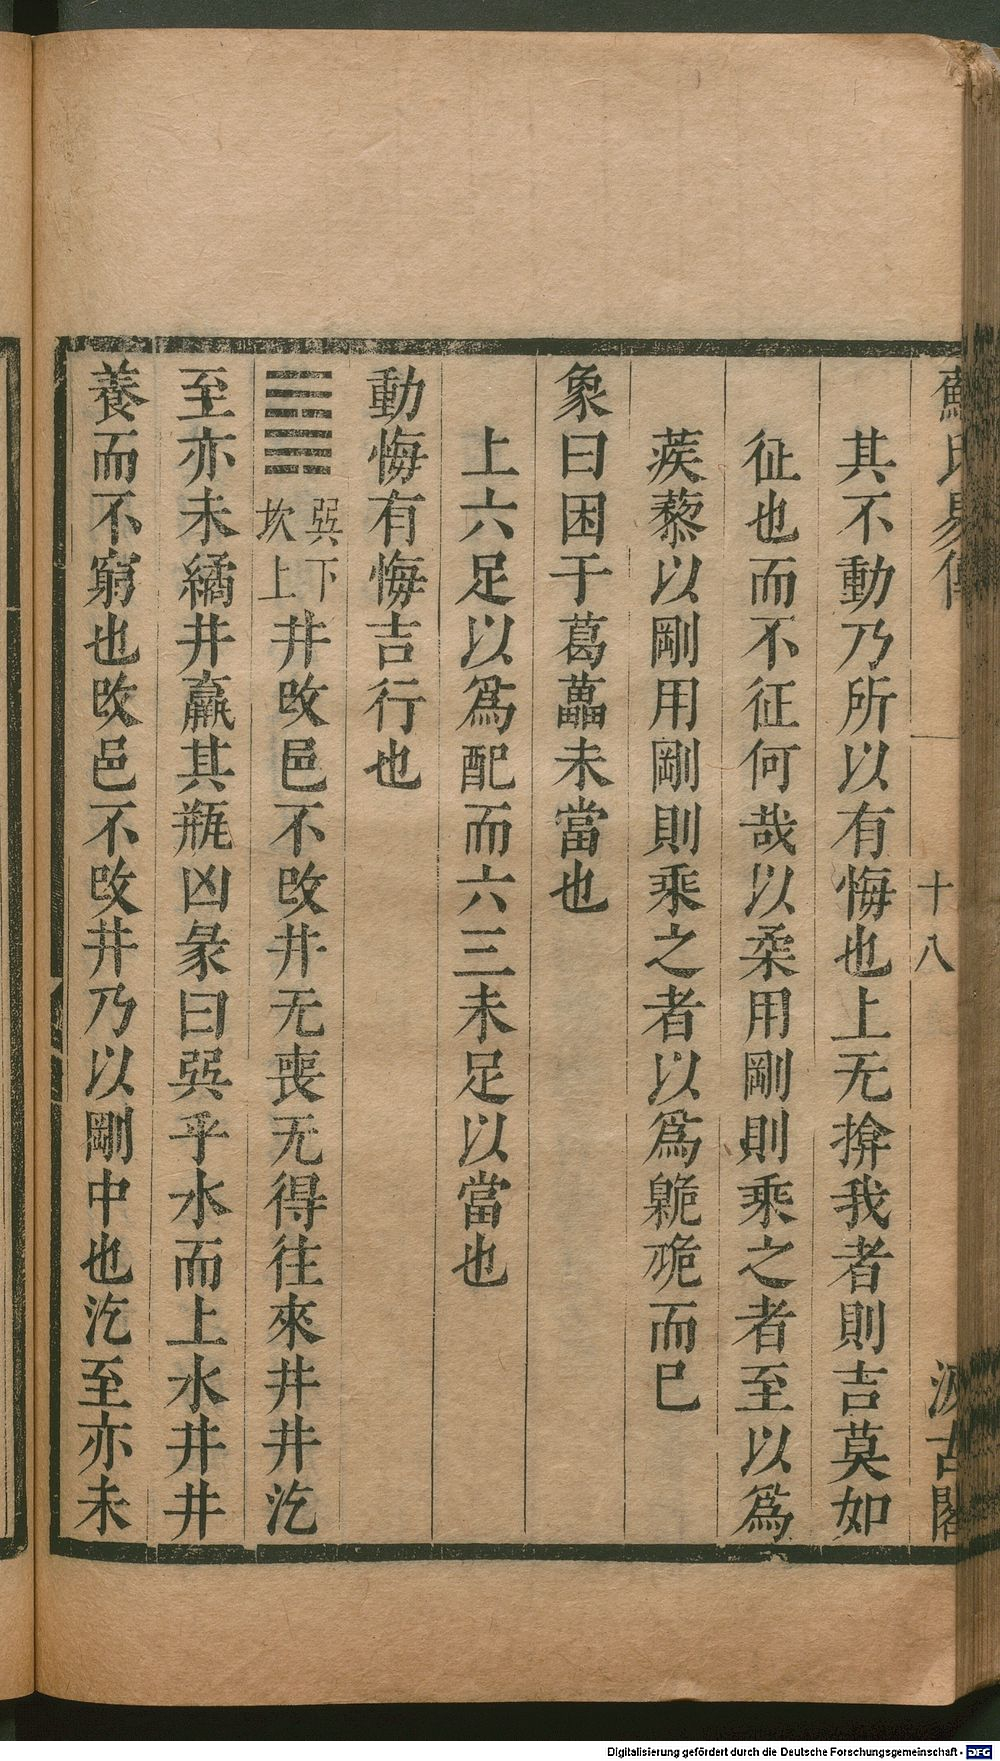 蘇氏易傳 十八 汲古閣
其不動乃所以有悔也上无揜我者則吉莫如
征也而不征何哉以柔用剛則乘之者至以爲
蒺藜以剛用剛則乘之者以爲臲卼而已
象曰困于葛藟未當也
上六足以爲配而六三未足以當也
動悔有悔吉行也
䷯ 巽下坎上 井改邑不改井无喪无得往來井井汔
至亦未繘井羸其瓶凶彖曰巽乎水而上水井井
養而不窮也改邑不改井乃以剛中也汔至亦未
Digitalisierung gefördert durch die Deutsche Forschungsgemeinschaft - DFG